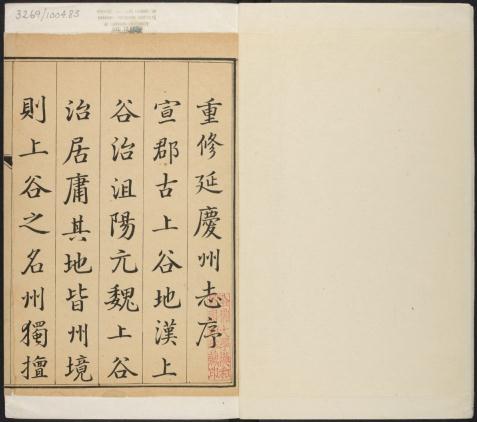 3269/1004.83
重修延慶州志序
宣郡古上谷地漢上
谷治沮陽元魏上谷
治居庸其地皆州境
則上谷之名州獨擅